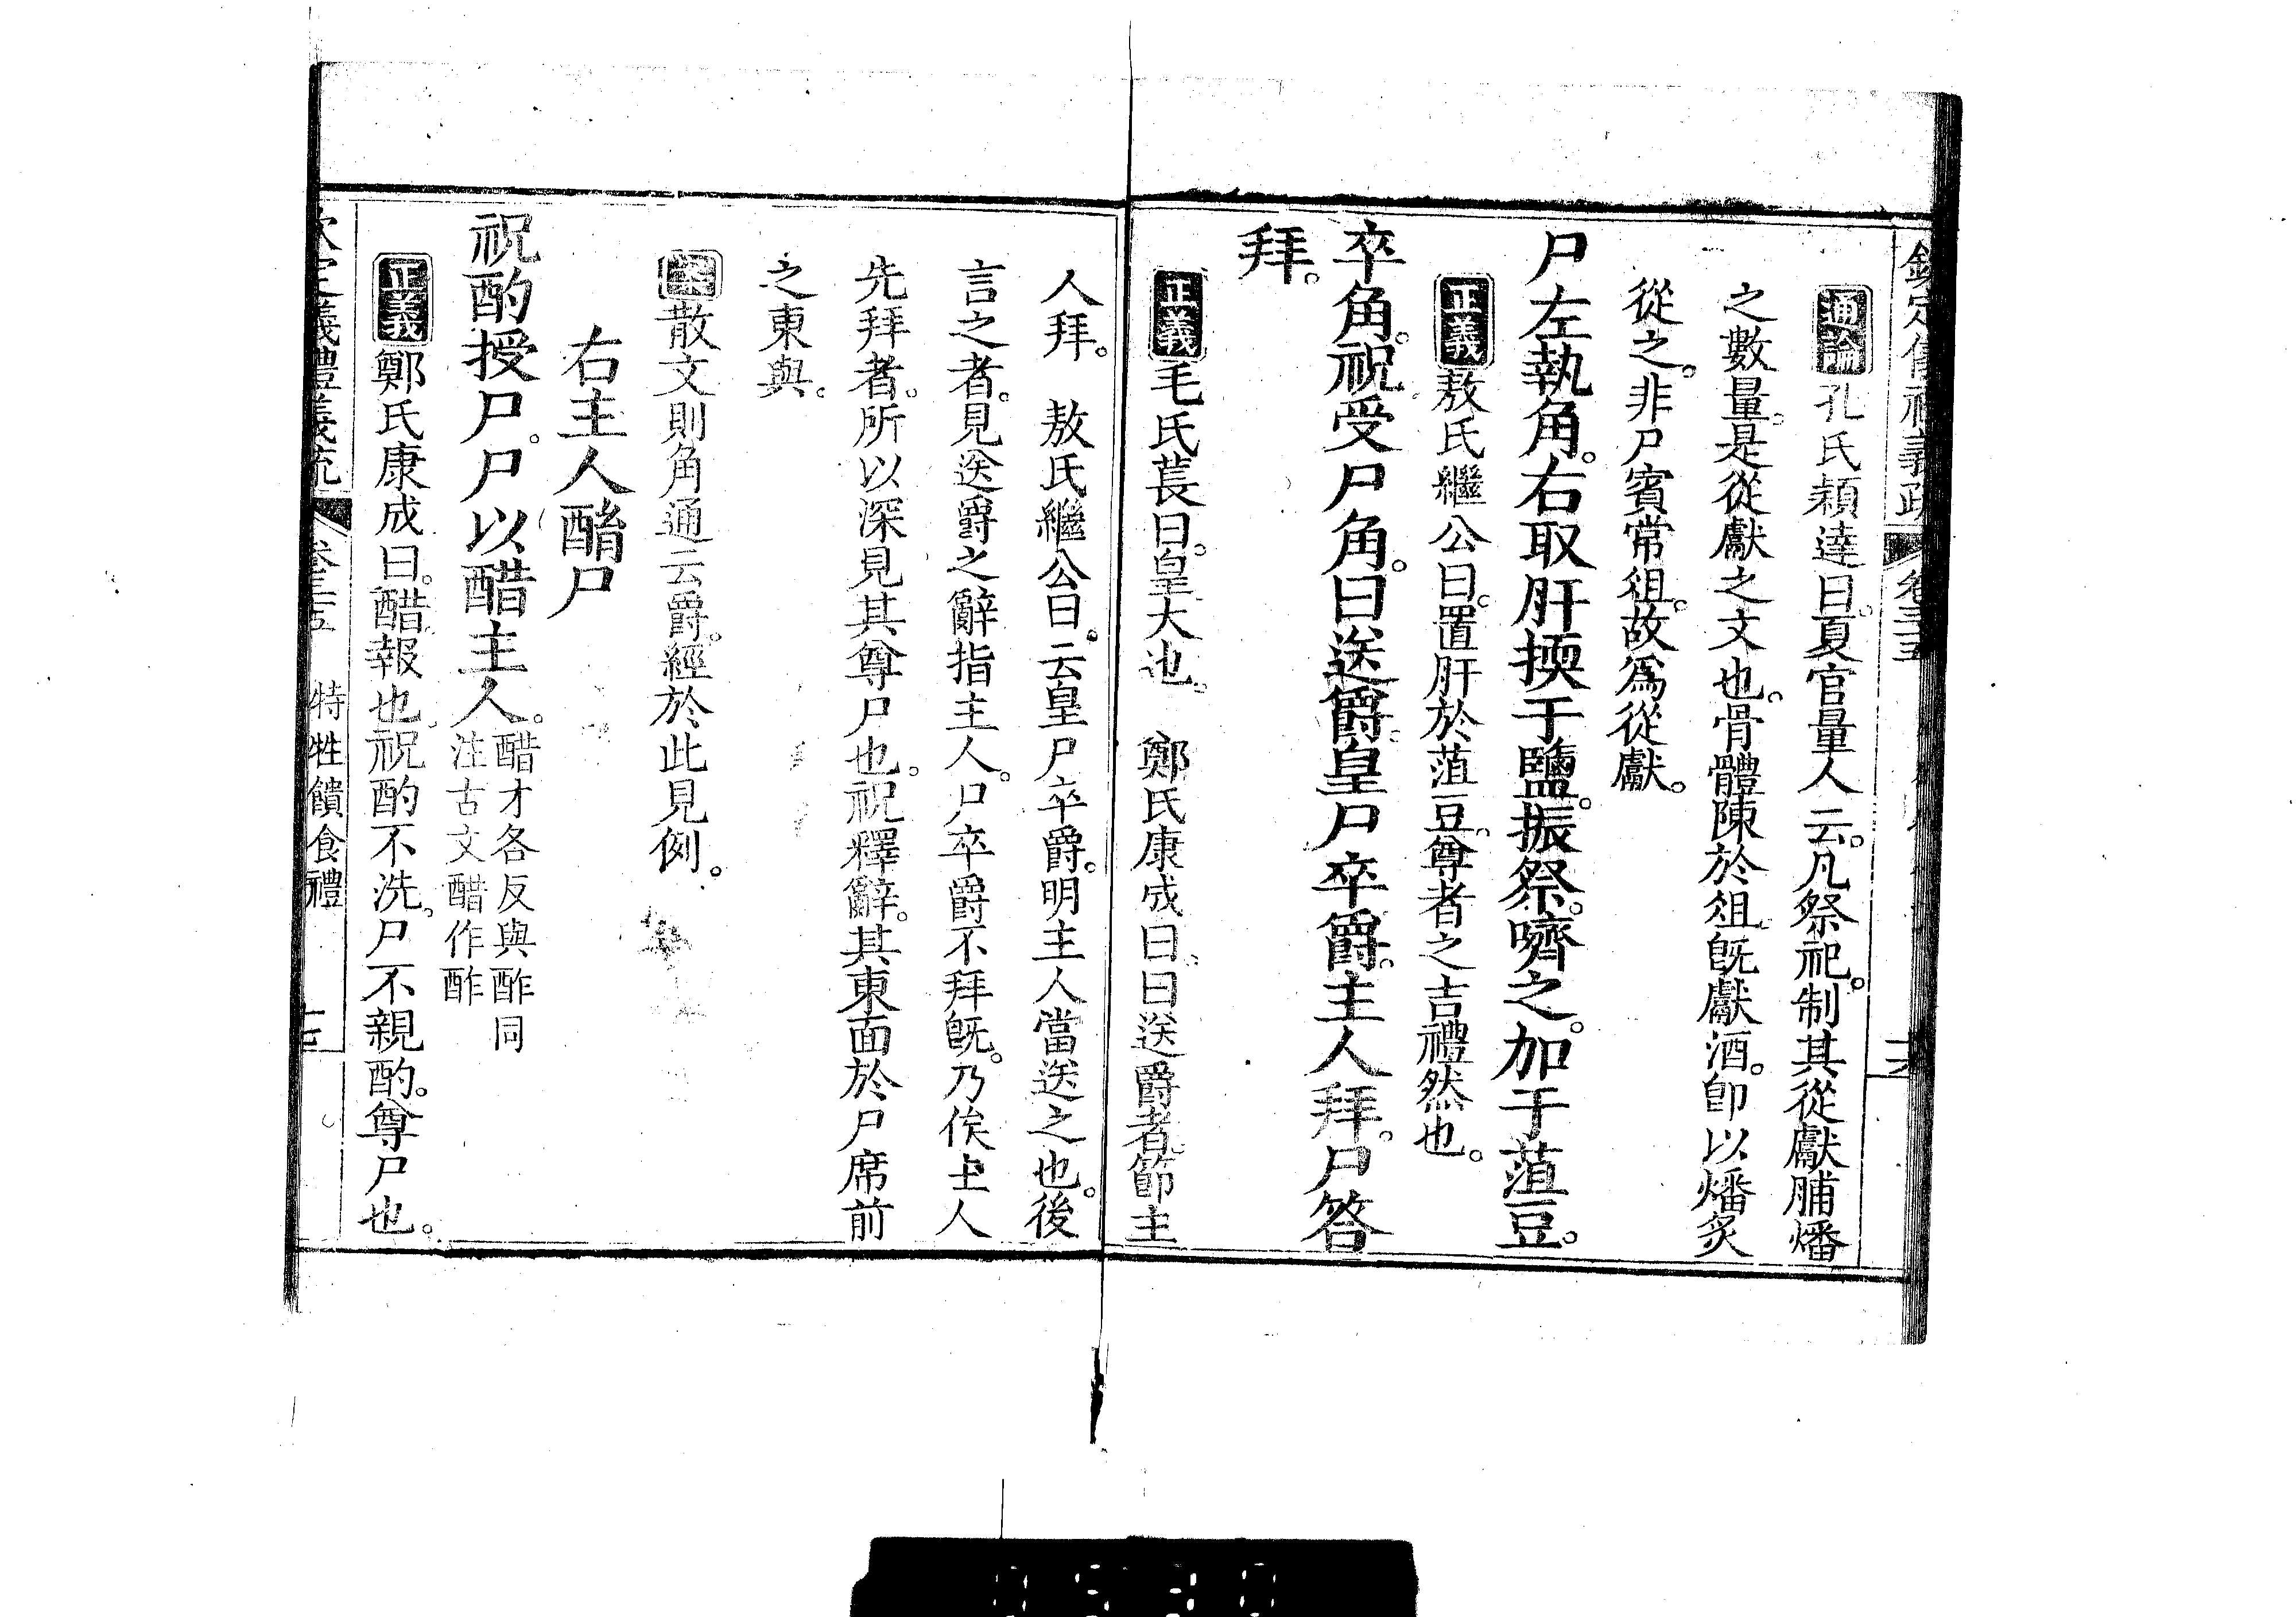 欽定儀禮義疏 卷三十五
通論孔氏穎達曰。夏官量人云。凡祭祀。制其從獻脯燔
之數量。是從獻之文也。骨體陳於俎。旣獻酒。卽以燔炙
從之。非尸賓常俎。故爲從獻。
尸左執角。右取肝擩于鹽。振祭。嚌之。加于菹豆。
正義敖氏繼公曰。置肝於菹豆。尊者之吉禮然也。
卒角。祝受尸角。曰送爵。皇尸卒爵。主人拜。尸答
拜。
正義毛氏萇曰。皇大也。 鄭氏康成曰。曰送爵者。節主
人拜。 敖氏繼公曰。云皇尸卒爵。明主人當送之也。後
言之者。見送爵之辭指主人。尸卒爵不拜旣。乃俟主人
先拜者。所以深見其尊尸也。祝釋辭。其東面於尸席前
之東與。
案散文則角通云爵。經於此見例。
右主人酳尸
祝酌授尸。尸以醋主人。醋才各反與酢同
注古文醋作酢
正義鄭氏康成曰。醋報也。祝酌不洗。尸不親酌。尊尸也。
欽定儀禮義疏 卷三十五 特牲饋食禮